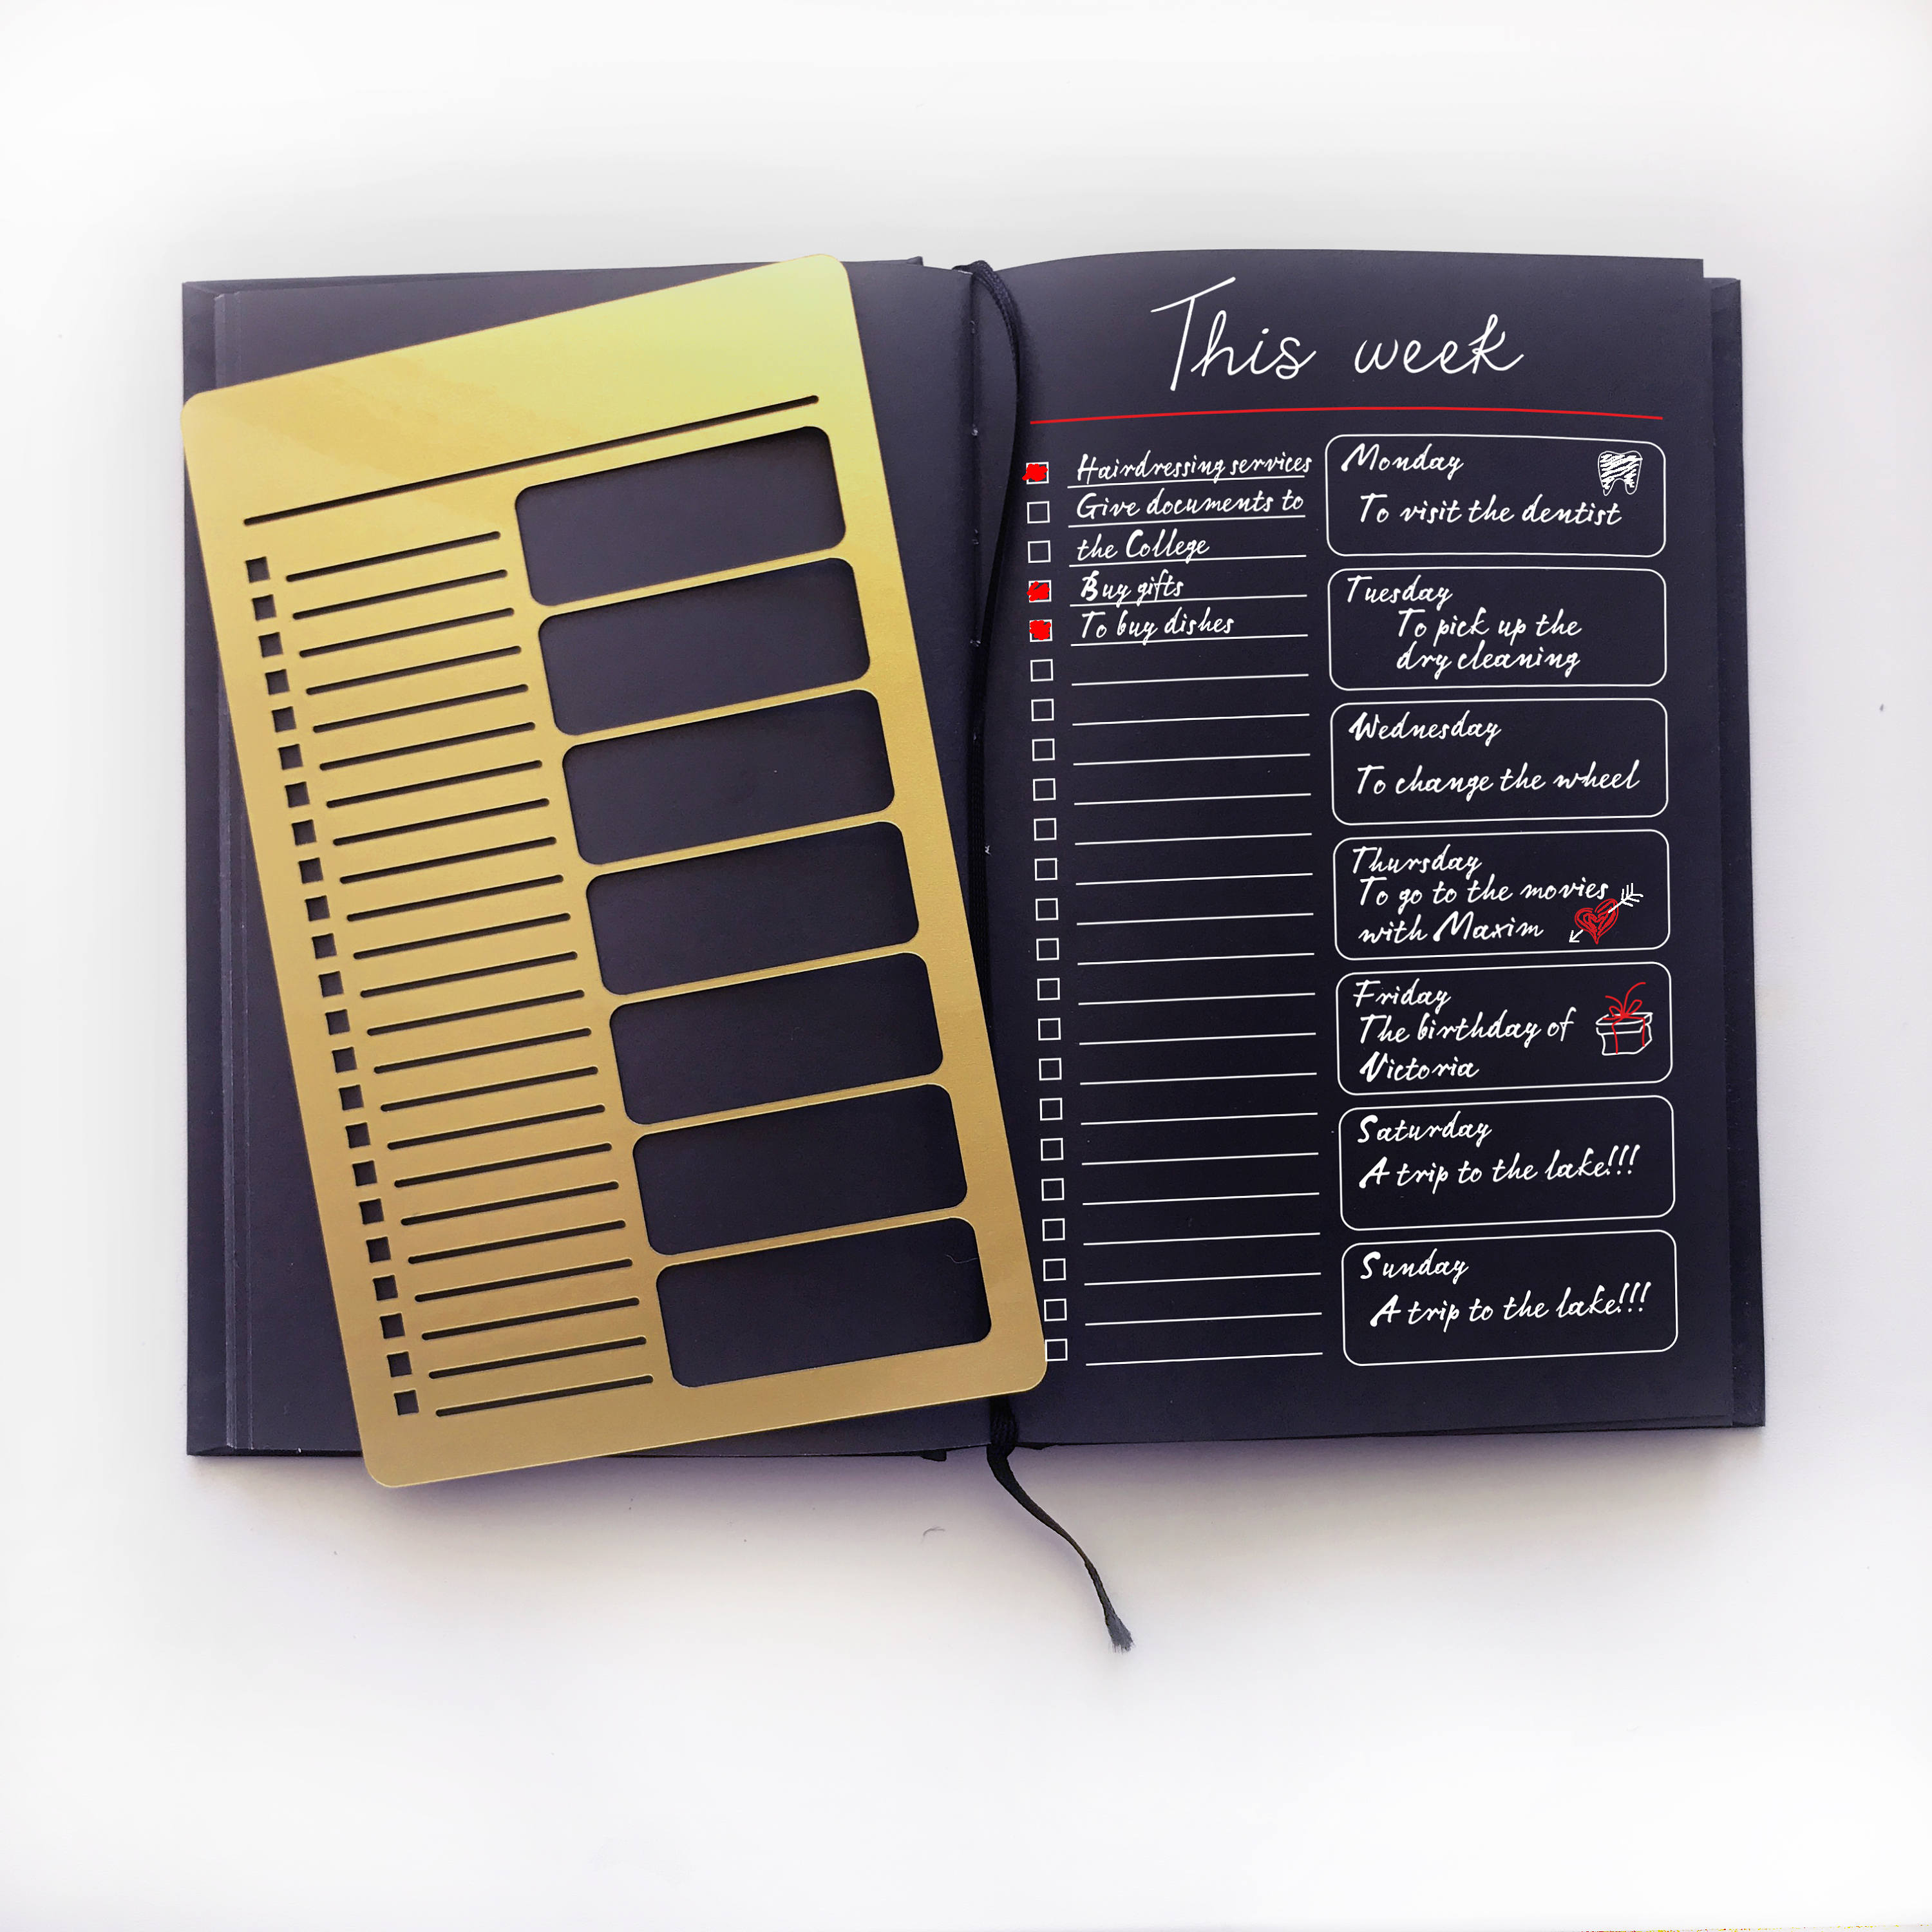 This week
Hairdressing services
Give documents to
the College
Buy gifts
To buy dishes
Monday
To visit the dentist
Tuesday
To pick up the
dry cleaning
Wednesday
To change the wheel
Thursday
To go to the movies
with Maxim
Friday
The birthday of
Victoria
Saturday
A trip to the lake!!!
Sunday
A trip to the lake!!!